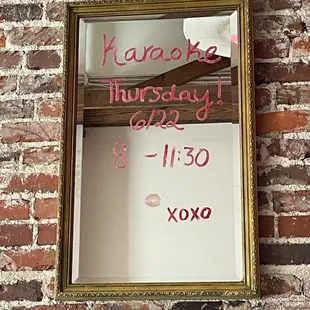 Karaoke
Thursday!
6/22
8 - 11:30
xoxo